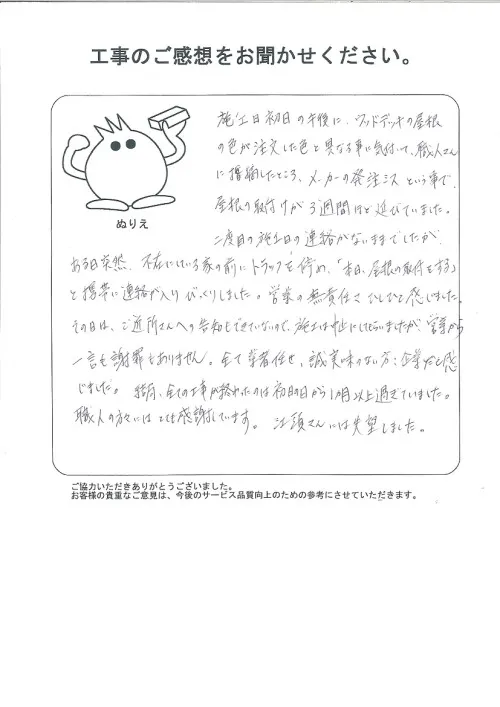 工事のご感想をお聞かせください。
ぬりえ
施工日初日の午後に、ウッドデッキの屋根
の色が注文した色と異なる事に気付いて、職人さん
に指摘したところ、メーカーの発注ミスという事で、
屋根の取付けが3週間ほど延びていました。
二度目の施工日の連絡がないままでしたが、
ある日突然、不在にしている家の前にトラックを停め、「本日、屋根の取付をする」
と携帯に連絡が入りびっくりしました。営業の無責任さひしひしと感じました。
その日は、ご近所さんへの告知もできていないので、施工は中止にしてもらいましたが、営業から
一言も謝罪もありません。全て業者任せ、誠実味のない方：企業だと感
じました。結局、全ての工事が終わったのは初日の日から1ヵ月以上過ぎていました。
職人の方々にはとても感謝しています。江頭さんには失望しました。
ご協力いただきありがとうございました。
お客様の貴重なご意見は、今後のサービス品質向上のための参考にさせていただきます。